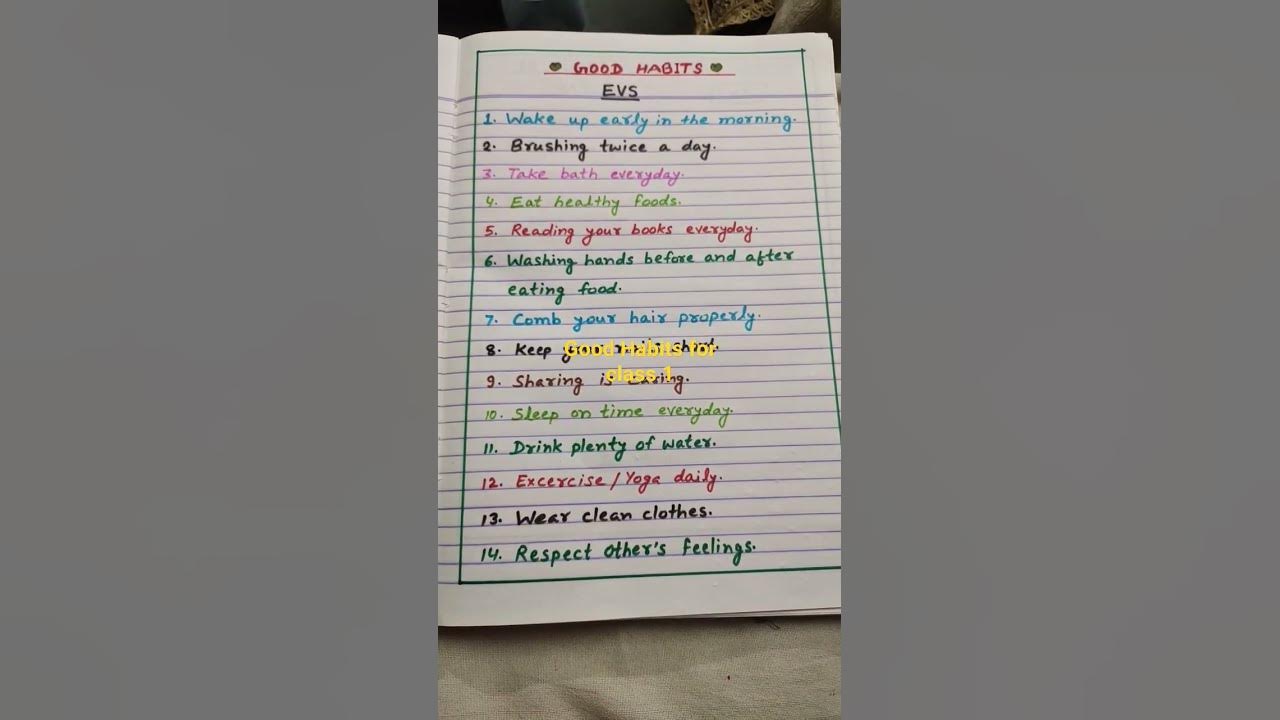 GOOD HABITS
EVS
1. Wake up early in the morning.
2. Brushing twice a day.
3. Take bath everyday.
4. Eat healthy foods.
5. Reading your books everyday.
6. Washing hands before and after
eating food.
7. Comb your hair properly.
8. Keep your short.
Good Habits for
class 1
9. Sharing is caring.
10. Sleep on time everyday.
11. Drink plenty of water.
12. Excercise/Yoga daily.
13. Wear clean clothes.
14. Respect other's feelings.